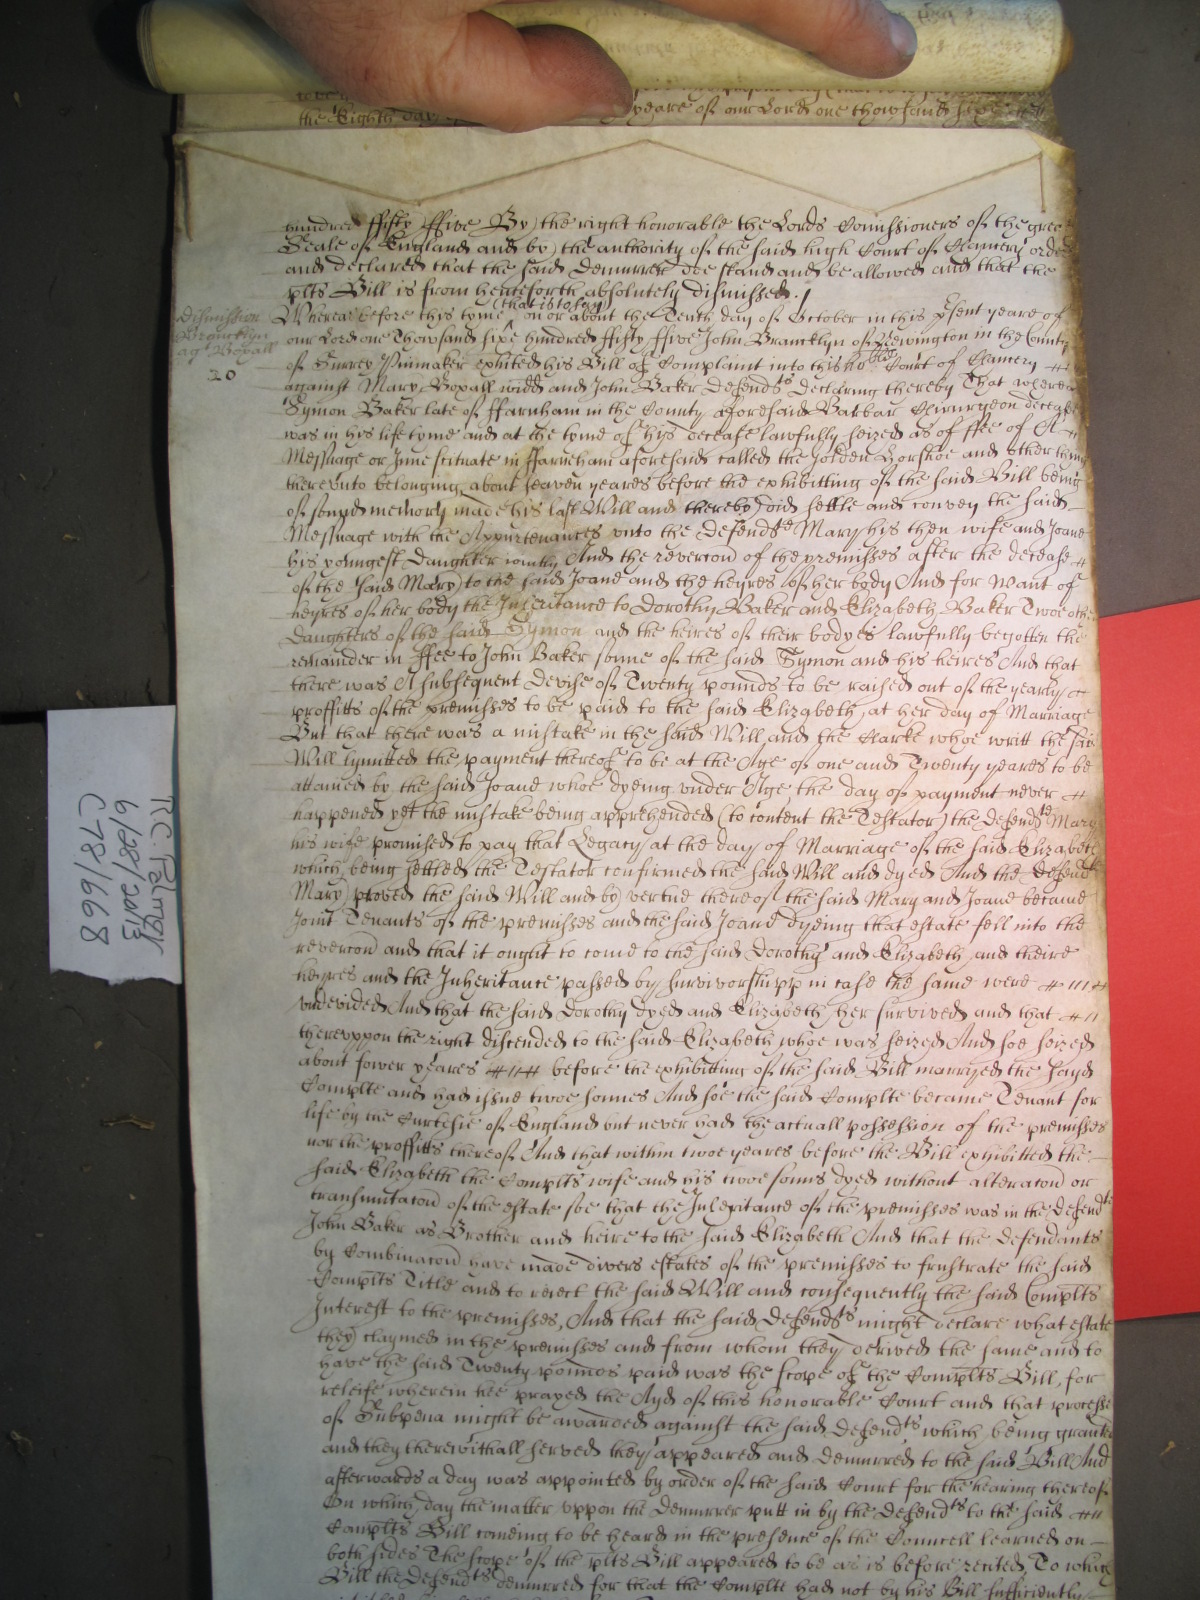 the Eighth day yeare of our Lord one thowsand sixe
hundred ffifty ffive By the right honorable the Lords Comissioners of the greate
Seale of England and by the authority of the said high Court of Chancery order
and declared that the said demurrer doe stand and be allowed and that the
plts Bill is from henceforth absolutely dismissed.
dismission
Brancklyn
agt Boxall
20
Whereas before this tyme (that is to say) on or about the Tenth day of October in this psent yeare of
our Lord one Thowsand sixe hundred ffifty ffive John Brancklyn of Newington in the County
of Surrey Pinmaker exhited his Bill of Complaint into this hoble Court of Chancery
against Mary Boxall widd and John Baker Defendts declaring thereby That whereas
Symon Baker late of ffarnham in the County aforesaid Barbar Chirurgeon deceased
was in his life tyme and at the tyme of his decease lawfully seized as of ffee of A
Messuage or Inne scituate in ffarneham aforesaid called the Golden Horshoe and other things
therevnto belonging about seaven yeares before the exhibitting of the said Bill being
of sound memory made his last Will and thereby did settle and convey the said
Messuage with the Appurtenances vnto the defendte Mary his then wife and Joane
his youngest Daughter ioyntly And the revercon of the premisses after the decease
of the said Mary to the said Joane and the heyres of her body And for want of
heyres of her body the Inheritance to Dorothy Baker and Elizabeth Baker Twoe other
Daughters of the said Symon and the heires of their bodyes lawfully begotten the
remainder in ffee to John Baker sonne of the said Symon and his heires And that
there was A subsequent devise of Twenty pounds to be raised out of the yearly
proffitts of the premisses to be paid to the said Elizabeth at her day of Marriage
But that there was a mistake in the said Will and the Clarke whoe writt the said
Will lymitted the payment thereof to be at the Age of one and Twenty yeares to be
attained by the said Joane whoe dyeing vnder Age the day of payment never
happened yet the mistake being apprehended (to content the Testator) the defendte Mary
his wife promised to pay that Legacy at the day of Marriage of the said Elizabeth
which being settled the Testator confirmed the said Will and dyed And the defendt
Mary proved the said Will and by vertue thereof the said Mary and Joane became
Joint Tenants of the premisses and the said Joane dyeing that estate fell into the
revercon and that it ought to come to the said Dorothy and Elizabeth and theire
heyres and the Inheritance passed by survivorshipp in case the same were
vndevided And that the said Dorothy dyed and Elizabeth her survived and that
therevppon the right discended to the said Elizabeth whoe was seized And soe seized
about fower yeares before the exhibitting of the said Bill marryed the sayd
Complte and had issue twoe sonnes And soe the said Complte became Tenant for
life by the Curtesie of England but never had the actuall possession of the premisses
nor the proffitts thereof And that within twoe yeares before the Bill exhibitted the
said Elizabeth the Complts wife and his twoe sonns dyed without alteracon or
transmutacon of the estate soe that the Inheritance of the premisses was in the defendt
John Baker as Brother and heire to the said Elizabeth And that the defendants
by Combinacon have made divers estates of the premisses to frustrate the said
Complts Title and to reiect the said Will and consequently the said Complts
Interest to the premisses, And that the said defendts might declare what estate
they claymed in the premisses and from whom they derived the same and to
have the said Twenty pounds paid was the scope of the Complts Bill, for
releife wherein hee prayed the Ayd of this honorable Court and that processe
of Subpena might be awarded against the said defendts which being graunted
and they therewithall served they appeared and demurred to the said Bill And
afterwards a day was appointed by order of the said Court for the hearing thereof
On which day the matter vppon the demurrer putt in by the defendts to the said
Complts Bill comeing to be heard in the presence of the Councell learned on
both sides The scope of the plts Bill appeared to be as is before recited, To which
Bill the defendts demurred for that the Complte had not by his Bill sufficiently
R.C. Palmer
6/28/2013
C 78/668